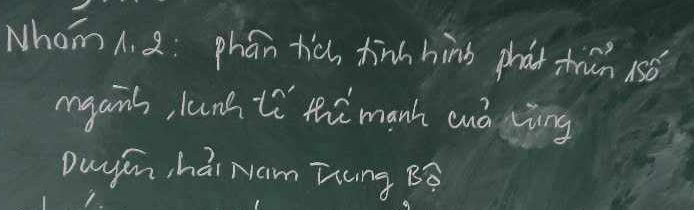 Nhóm 1.2: phân tích tình hình phát triển 1 số
ngành kinh tế thế mạnh của vùng
Duyên hải Nam Trung Bộ